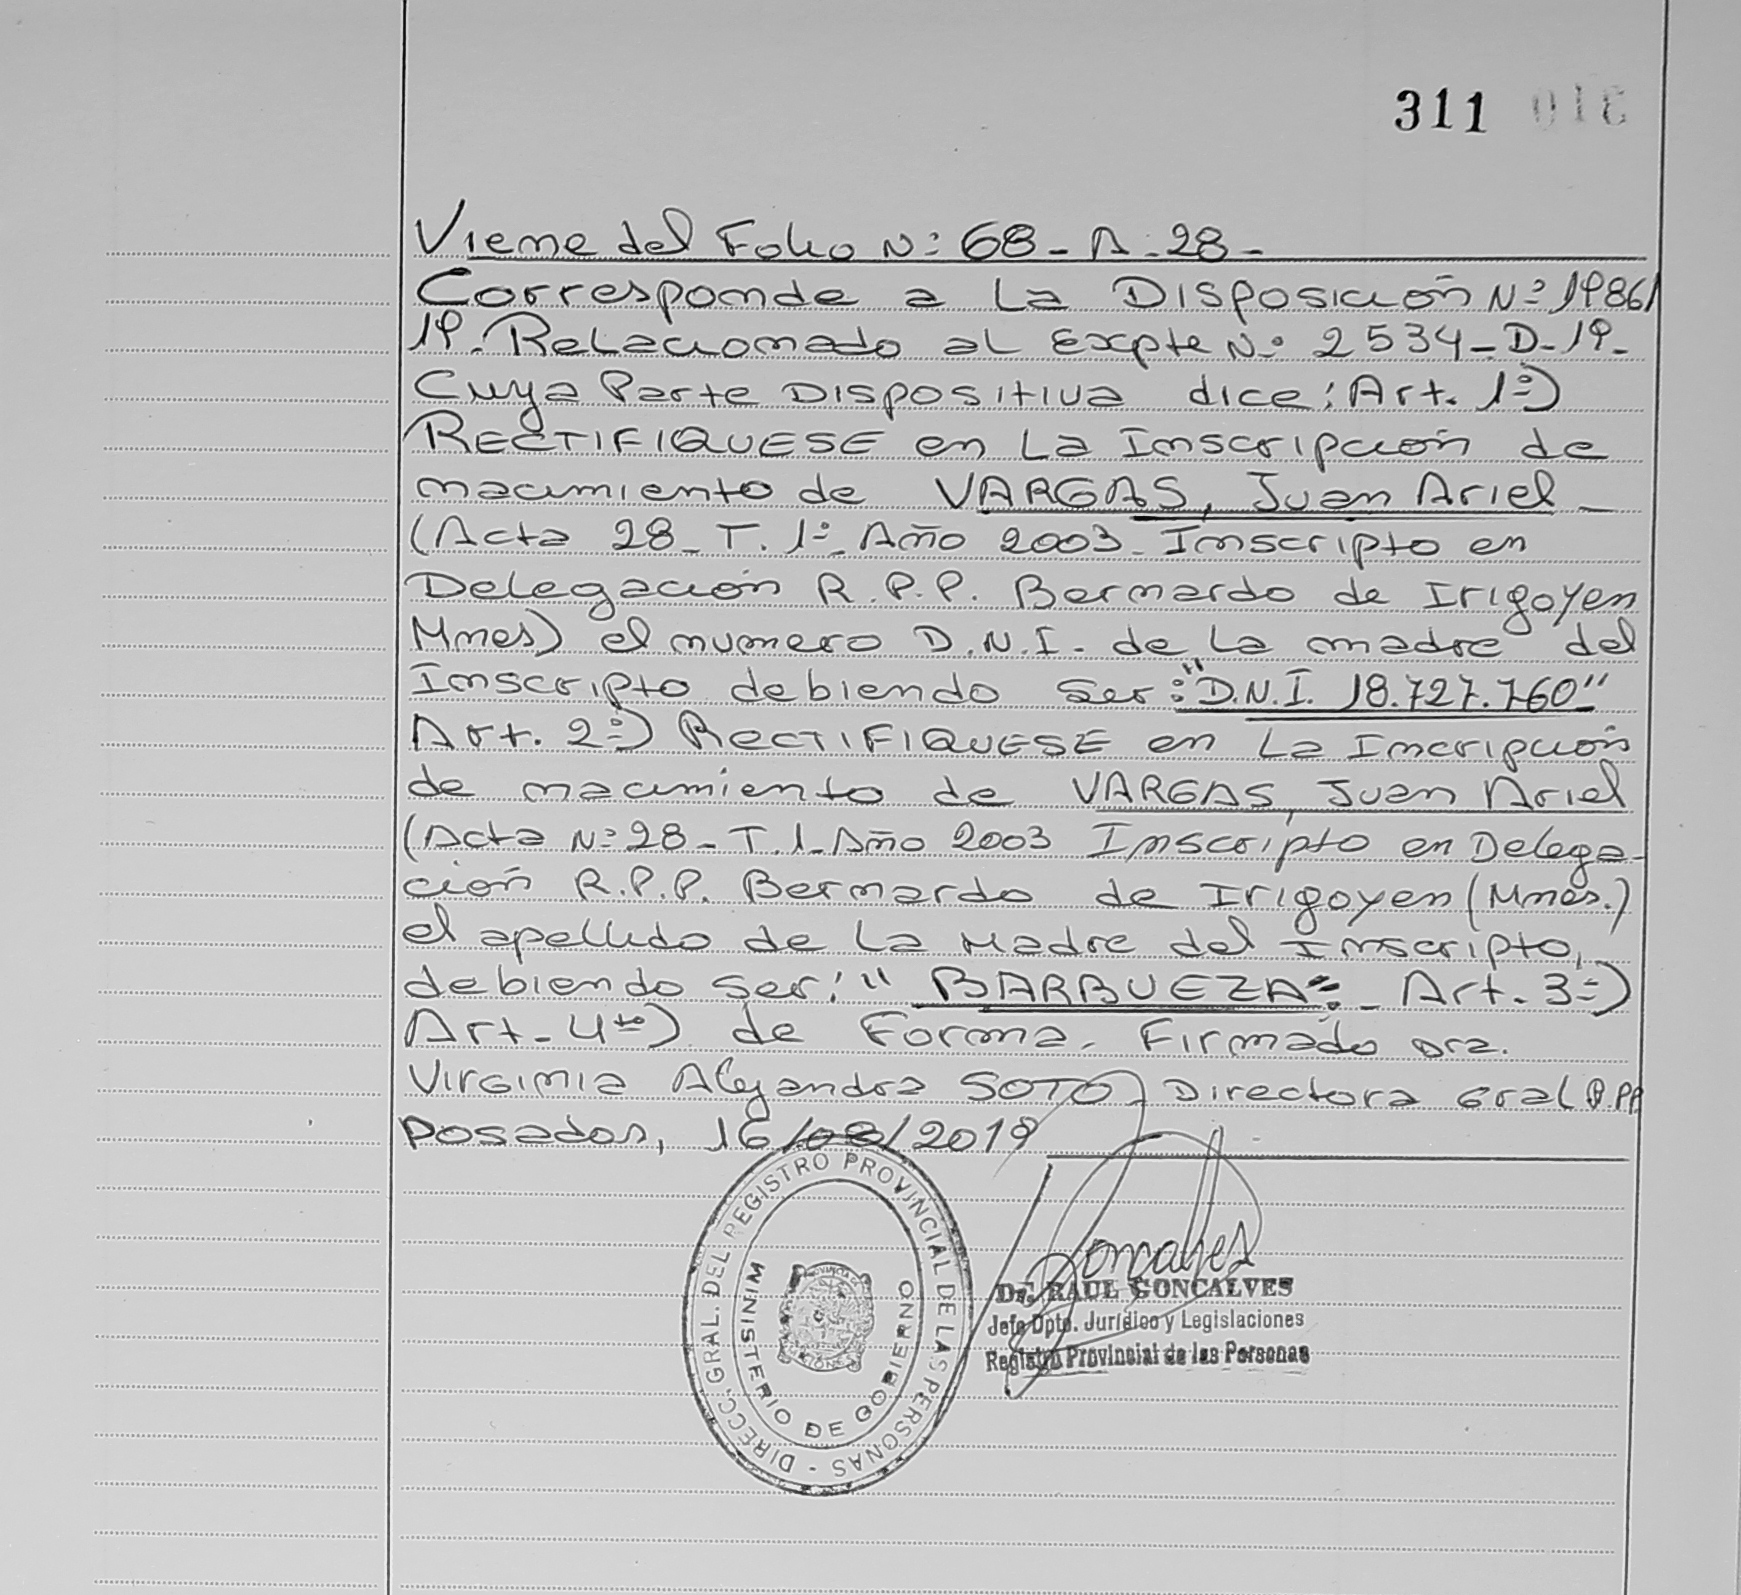 311 016
Viene del Folio N: 68 - A - 28 -
Corresponde a La Disposición Nº 1986/
19. Relacionado al Expte Nº 2534 - D - 19 -
Cuya Parte Dispositiva dice: Art. 1º)
RECTIFIQUESE en La Inscripción de
nacimiento de VARGAS, Juan Ariel -
(Acta 28 - T. 1º - Año 2003 - Inscripto en
Delegación R.P.P. Bernardo de Irigoyen
Mnes) el numero D.N.I. de La madre del
Inscripto debiendo ser: "D.N.I. 18.727.760"
Art. 2º) RECTIFIQUESE en La Incripción
de nacimiento de VARGAS, Juan Ariel
(Acta Nº 28 - T. 1 - Año 2003 Inscripto en Delega-
ción R.P.P. Bernardo de Irigoyen (Mnes.)
el apellido de La Madre del Inscripto,
debiendo ser: " BARBUEZA". - Art. 3º)
Art. 4to) de Forma. Firmado Dra.
Virginia Alejandra SOTO - Directora Gral R.P.P
Posadas, 16/08/2019
DIRECC. GRAL. DEL REGISTRO PROVINCIAL DE LAS PERSONAS -
MINISTERIO DE GOBIERNO
Goncalves
Dr. RAUL GONCALVES
Jefe Dpto. Jurídico y Legislaciones
Registro Provincial de las Personas